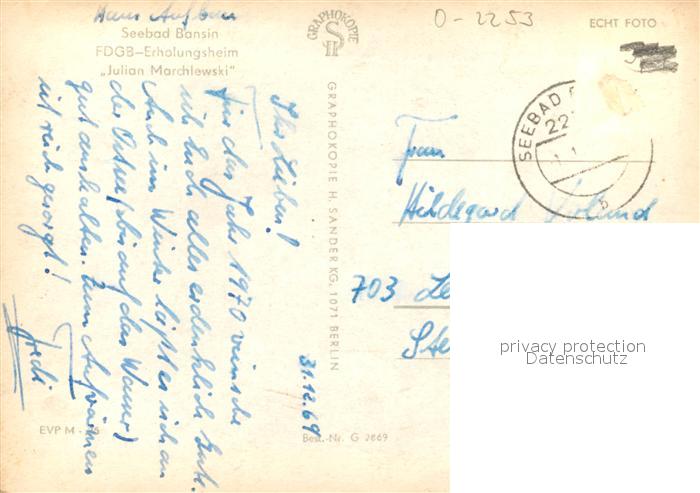 Haus Aufbau
Seebad Bansin
FDGB-Erholungsheim
„Julian Marchlewski“
GRAPHOKOPIE
H S
O-2253
ECHT FOTO
SEEBAD
22
5
GRAPHOKOPIE H. SANDER KG, 1071 BERLIN
31.12.69
Ihr Lieben!
Für das Jahr 1970 wünsche
ich Euch alles erdenklich Gute.
Auch im Winter läßt es sich an
der Ostsee (bis auf das Wasser)
gut aushalten. Zum Aufwärmen
ist reich gesorgt!
Fredi
Frau
Hildegard
703 Le
Ste
EVP M
Best.-Nr. G 2869
privacy protection
Datenschutz